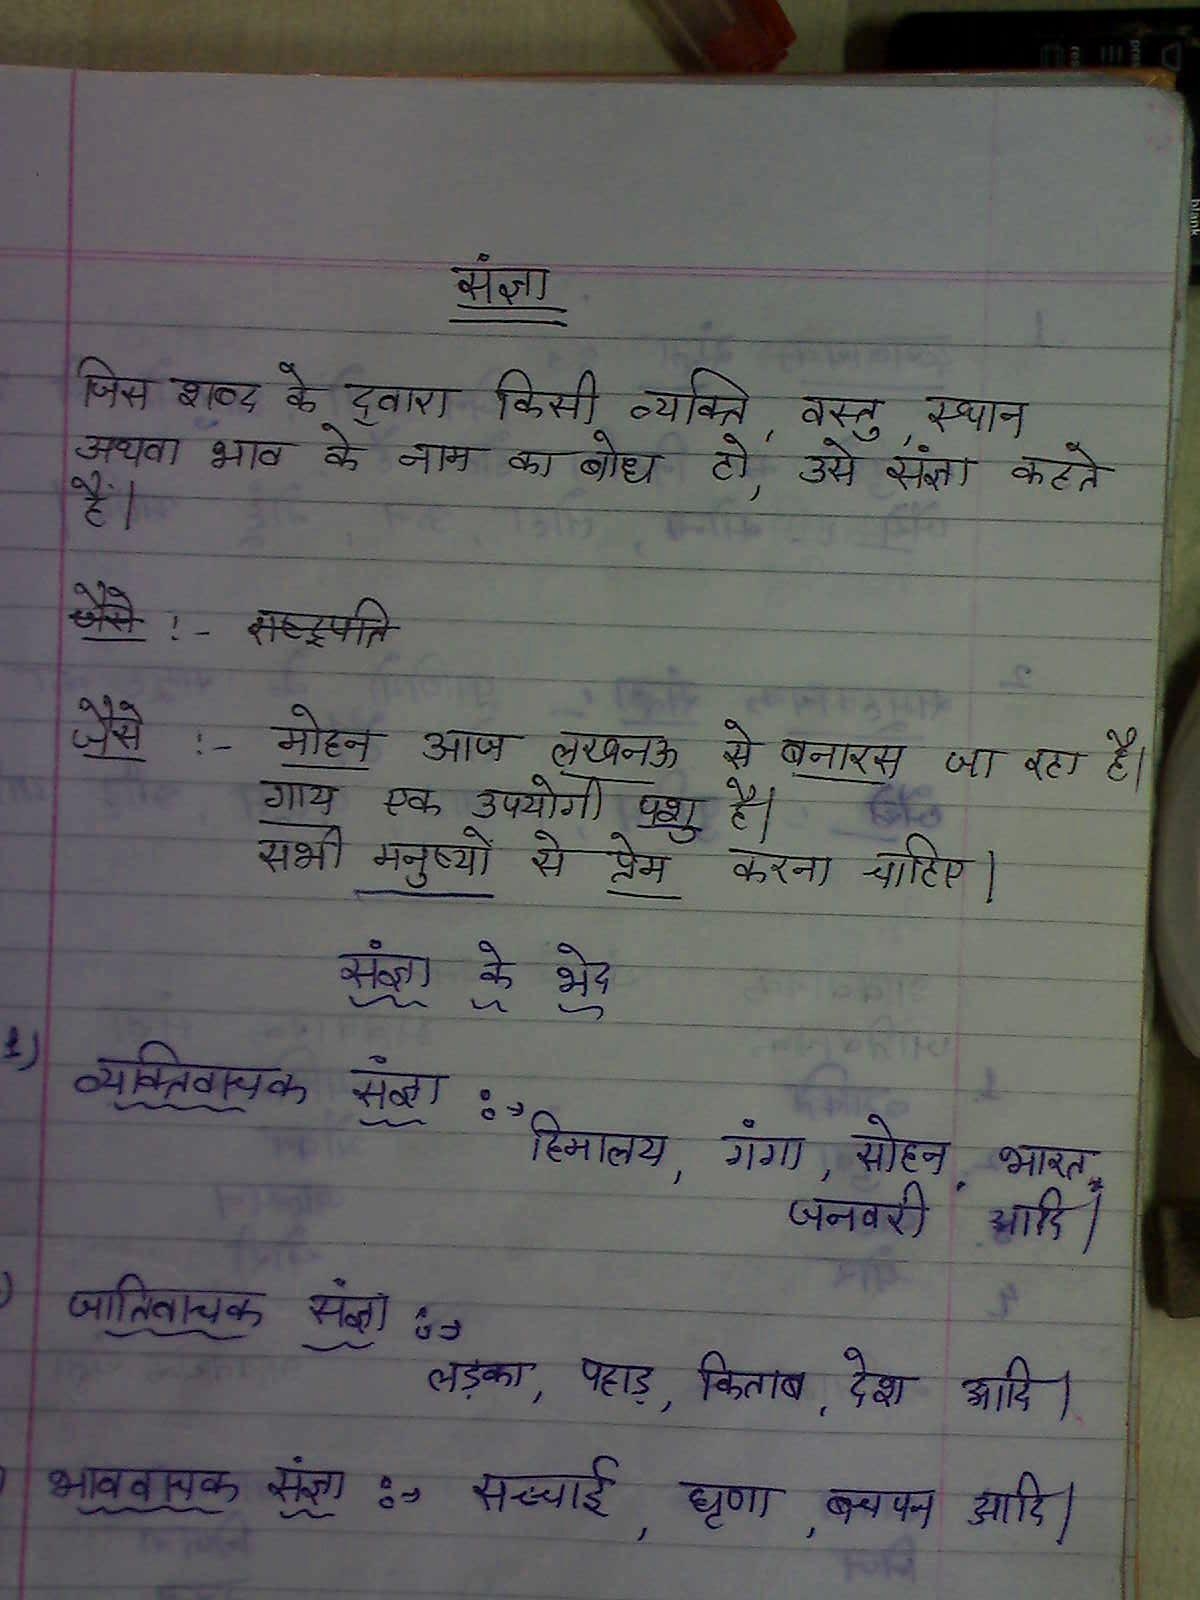 संज्ञा
जिस शब्द के द्वारा किसी व्यक्ति, वस्तु, स्थान
अथवा भाव के नाम का बोध हो, उसे संज्ञा कहते
हैं।
जैसे :- राष्ट्रपति
जैसे :- मोहन आज लखनऊ से बनारस जा रहा है।
गाय एक उपयोगी पशु है।
सभी मनुष्यों से प्रेम करना चाहिए।
संज्ञा के भेद
1) व्यक्तिवाचक संज्ञा :→
हिमालय, गंगा, सोहन, भारत,
जनवरी आदि।
) जातिवाचक संज्ञा :→
लड़का, पहाड़, किताब, देश आदि।
) भाववाचक संज्ञा :→ सच्चाई, घृणा, बचपन आदि।